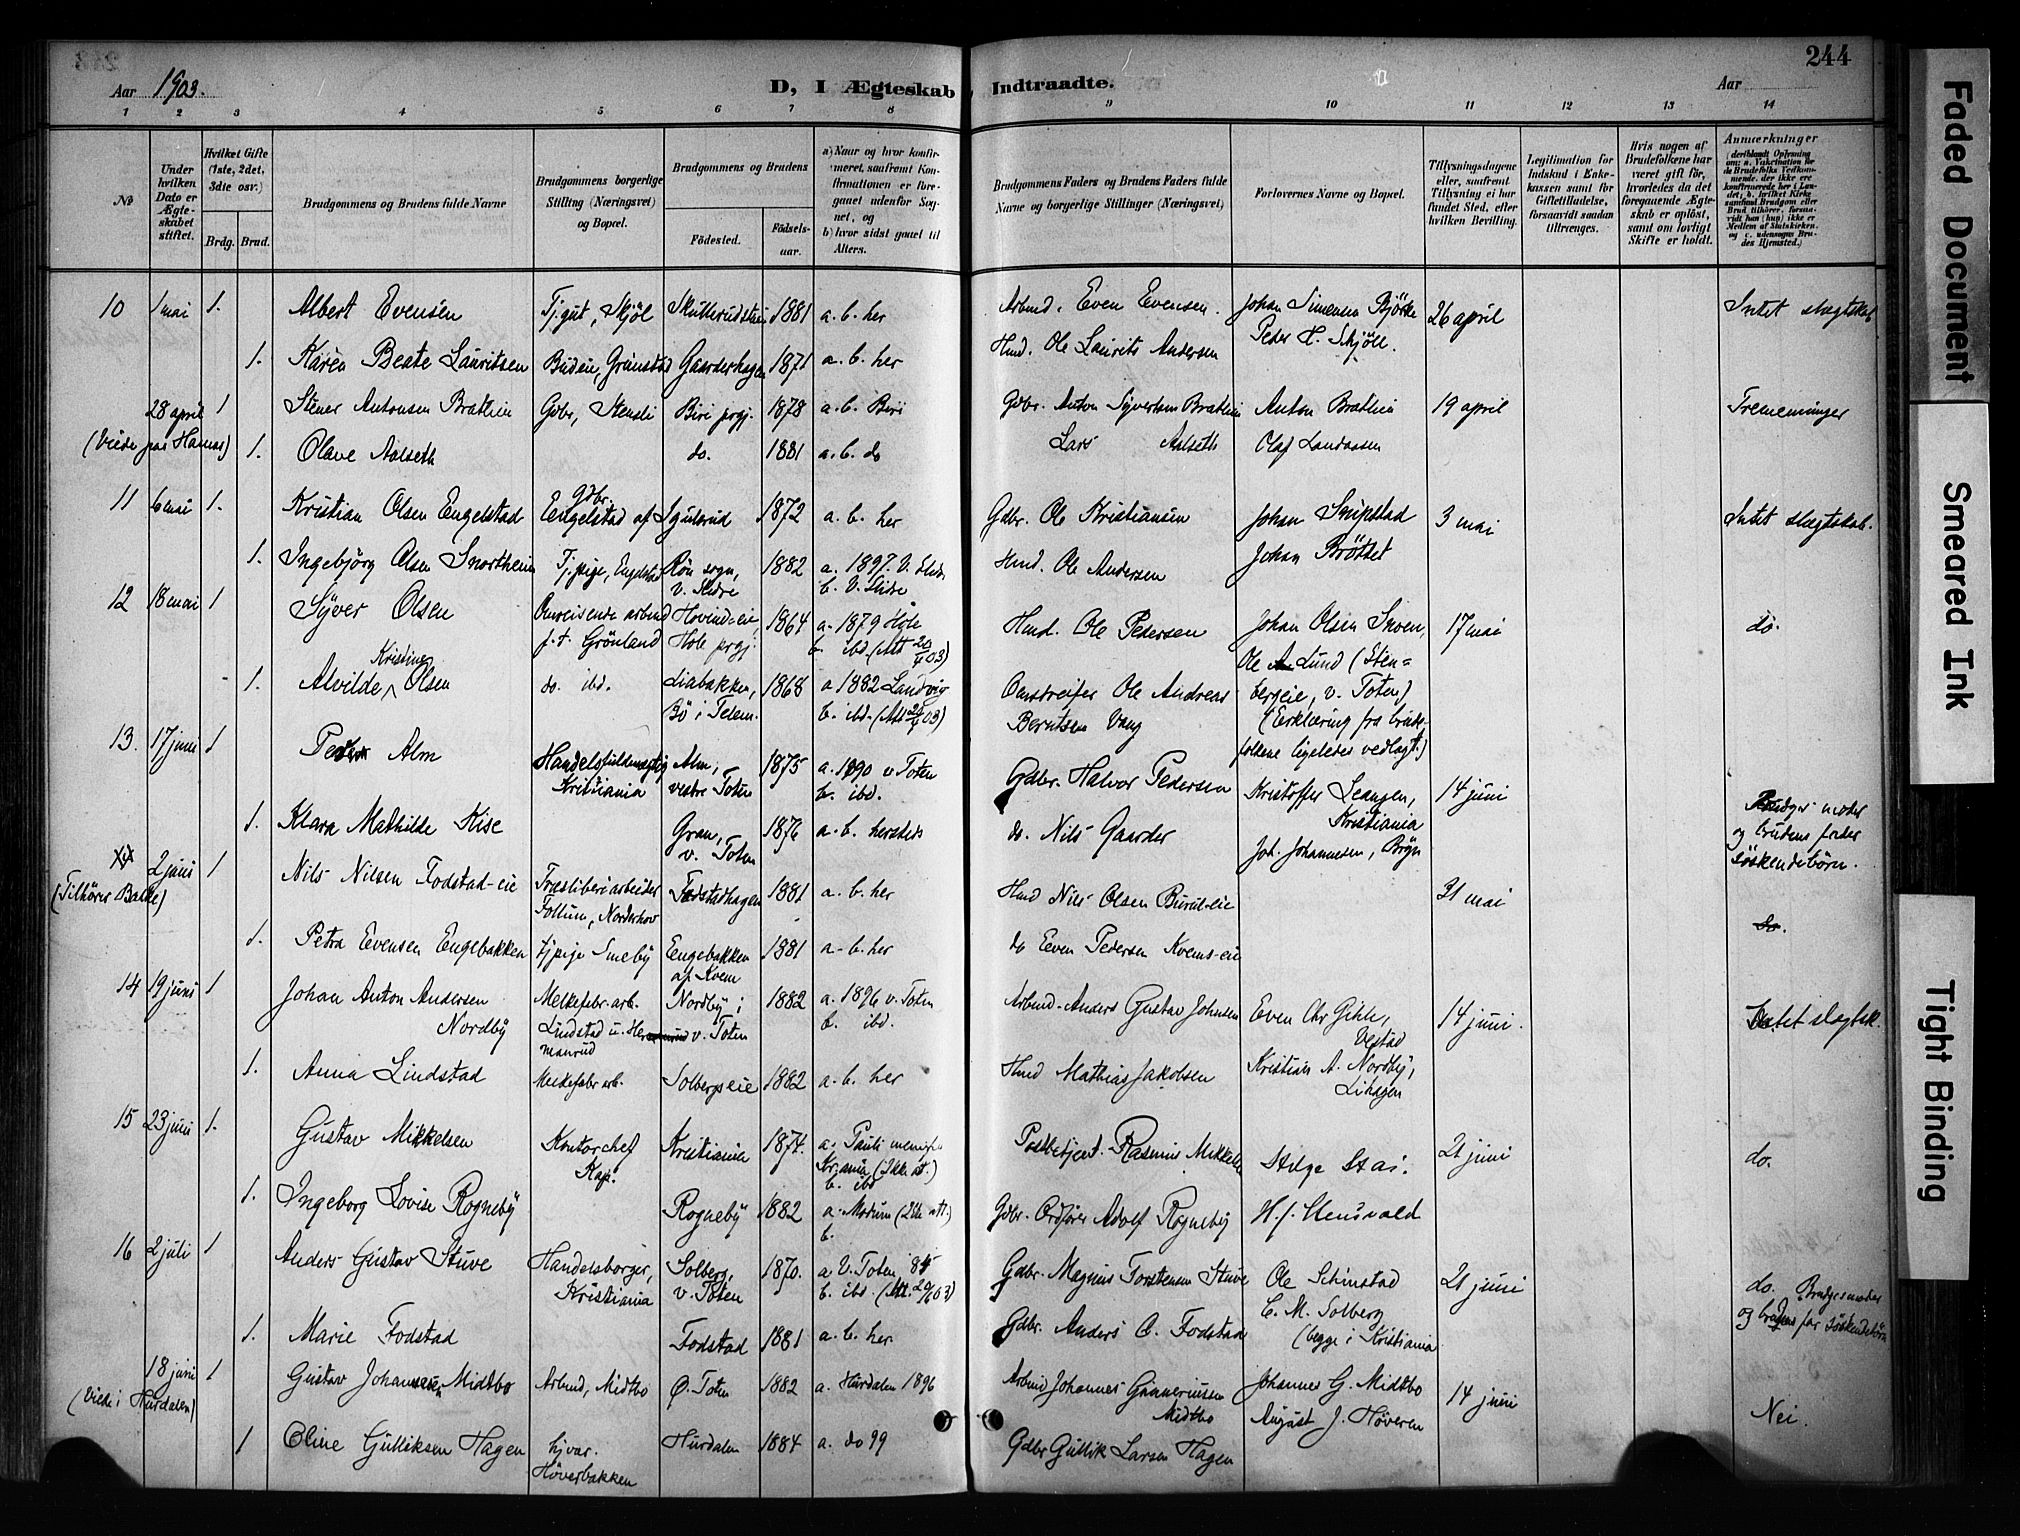 244
Aar 1903.
D, I Ægteskab Indtraadte.
Aar
1 2 3 4 5 6 7 8 9 10 11 12 13 14
No
Under hvilken Dato er Ægteskabet stiftet.
Hvilket Gifte (1ste, 2det, 3die osv.)
Brdg. Brud.
Brudgommens og Brudens fulde Navne
Brudgommens borgerlige Stilling (Næringsvei) og Bopæl.
Brudgommens og Brudens
Födested.
Födselsaar.
a) Naar og hvor konfirmeret, saafremt Konfirmationen er foregaaet udenfor Sognet, og
b) hvor sidst gaaet til Alters.
Brudgommens Faders og Brudens Faders fulde Navne og borgerlige Stillinger (Næringsvei)
Forlovernes Navne og Bopæl.
Tillysningsdagene eller, saafremt Tillysning ei har fundet Sted, efter hvilken Bevilling.
Legitimation for Indskud i Enkekassen samt for Giftetilladelse, forsaavidt saadan tiltrænges.
Hvis nogen af Brudefolkene har været gift för, hvorledes da det foregaaende Ægteskab er oplöst, samt om lovligt Skifte er holdt.
Anmærkninger
10 1 mai 1. Albert Evensen Tj.gut, Skjöl 1881 a. b. her Arbmd. Even Evensen. Johan Simensen Björke 26 april Intet slægtskab
Peder H. Skjöll.
1. Karen Beate Lauritsen Budeie, Grimstad Gaarderhagen 1871 a. b. her Hmd. Ole Laurits Andersen
28 april 1 Stener Antonsen Brathein Gdbr, Stensli Biri prgj. 1878 a. b. Biri Gdbr. Anton Syvertsen Brathein Anton Brathein 19 april Tremenninger
(Viede paa Hamar) 1. Olave Aalseth do. 1881 a. b. do Lars Aalseth Olaf Landaasen
11 6 mai 1. Kristian Olsen Engelstad Gdbr. Engelstad af Sgulsrud 1872 a. b. her Gdbr. Ole Kristiansen Johan Snipstad 3 mai Intet slægtskab.
1. Ingebjörg Olsen Snortheim Tj.pige, Engelstad Røn sogn, v. Slidre 1882 a. 1897 V. Slidre b. V. Slidre Hmd. Ole Andersen Johan Bröttet
12 18 mai 1 Syver Olsen Omreisende arbmd f. t. Grönland Hovind-eie Hole prgj. 1864 a. 1879 Hole b. ibd. (Att 20/4 03) Hmd. Ole Pedersen Johan Olsen Sveen, 17 mai do.
Ole Lund (Stenbergeie, v. Toten)
1. Alvilde Kristine Olsen do. ibd. Liabakken, Bö i Telem. 1868 a 1882 Landvig b. ibd. (Att 24/4 03) Omstreifer Ole Andreas Berntsen Vang
(Erklæring fra brudefolkene ligeledes vedlagt.)
13. 17 juni 1 Peder Alm Handelsfuldmægtig Kristiania Alm, vestre Toten 1875 a. 1890 v Toten b. ibd. Gdbr. Halvor Pedersen Kristoffer Leangen, Kristiania 14 juni Brudgs moder og brudens fader söskendebörn.
1. Klara Mathilde Kise Gran, v. Toten 1876 a. b. hersteds do. Nils Gaarder Joh. Johannesen, Bryn
2 juni 1 Nils Nilsen Fodstad-eie Træsliberiarbeider Follum, Norderhov Fodstadhagen 1881 a. b. her Hmd Nils Olsen Burul-eie 31 mai
(Tilhörer Balke)
1. Petra Evensen Engebakken tjpige Smeby Engebakken af Kvem 1881 a. b. her do Even Pedersen Kvems-eie do.
14 19 juni 1 Johan Anton Andersen Nordby Melkefabr. arb. Lindstad u. Hermanrud Nordby i v. Toten 1882 a. 1896 v. Toten b. ibd. Arbmd. Anders Gustav Johnsen Even Chr Gihle, Vestad 14 juni. Intet slegtsk.
1. Anna Lindstad Melkefabr arb. Solbergseie 1882 a. b. her Hmd Mathias Jakobsen Kristian A. Nordby, Lihagen
15 23 juni 1. Gustav Mikkelsen Kontorchef Kap. Kristiania 1874. a. Pauli menighed Kr.ania (Ikke att.) b. ibd Postbetjent. Rasmus Mikkelsen Helge Stai. 21 juni do.
1. Ingeborg Lovise Rogneby Rogneby 1882 a. Modum (Ikke att.) b. Gdbr. Ordförer Adolf Rogneby H. J. Hensvald
16 2 juli 1 Anders Gustav Stuve Handelsborger, Kristiania Solberg, v. Toten 1870. a V. Toten 85 b. ibd. (Att. 20/6 03) Gdbr. Magnus Torstensen Stuve Ole Schinstad 21 juni do. Brudgs moder og brudens far söskendebörn
1. Marie Fodstad Fodstad 1881 a. b. her Gdbr. Anders C. Fodstad C. M. Solberg (begge i Kristiania
18 juni 1 Gustav Johannesen Midtbo Arbmd, Midtbo Ø. Toten 1882 a. Hurdalen 1896 Arbmd Johannes Gunneriusen Midtbo Johannes G. Midtbo 14 juni Nei.
(Viede i Hurdalen)
1 Oline Gulliksen Hagen hjvær. Höverbakken Hurdalen 1884 a. do 99 Gdbr Gullik Larsen Hagen August J. Höveren
Faded Document
Smeared Ink
Tight Binding